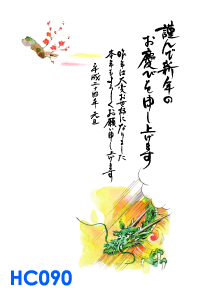 謹んで新年の
お慶びを申し上げます
昨年は大変お世話になりました
本年もよろしくお願い申し上げます
平成二十四年 元旦
HC090